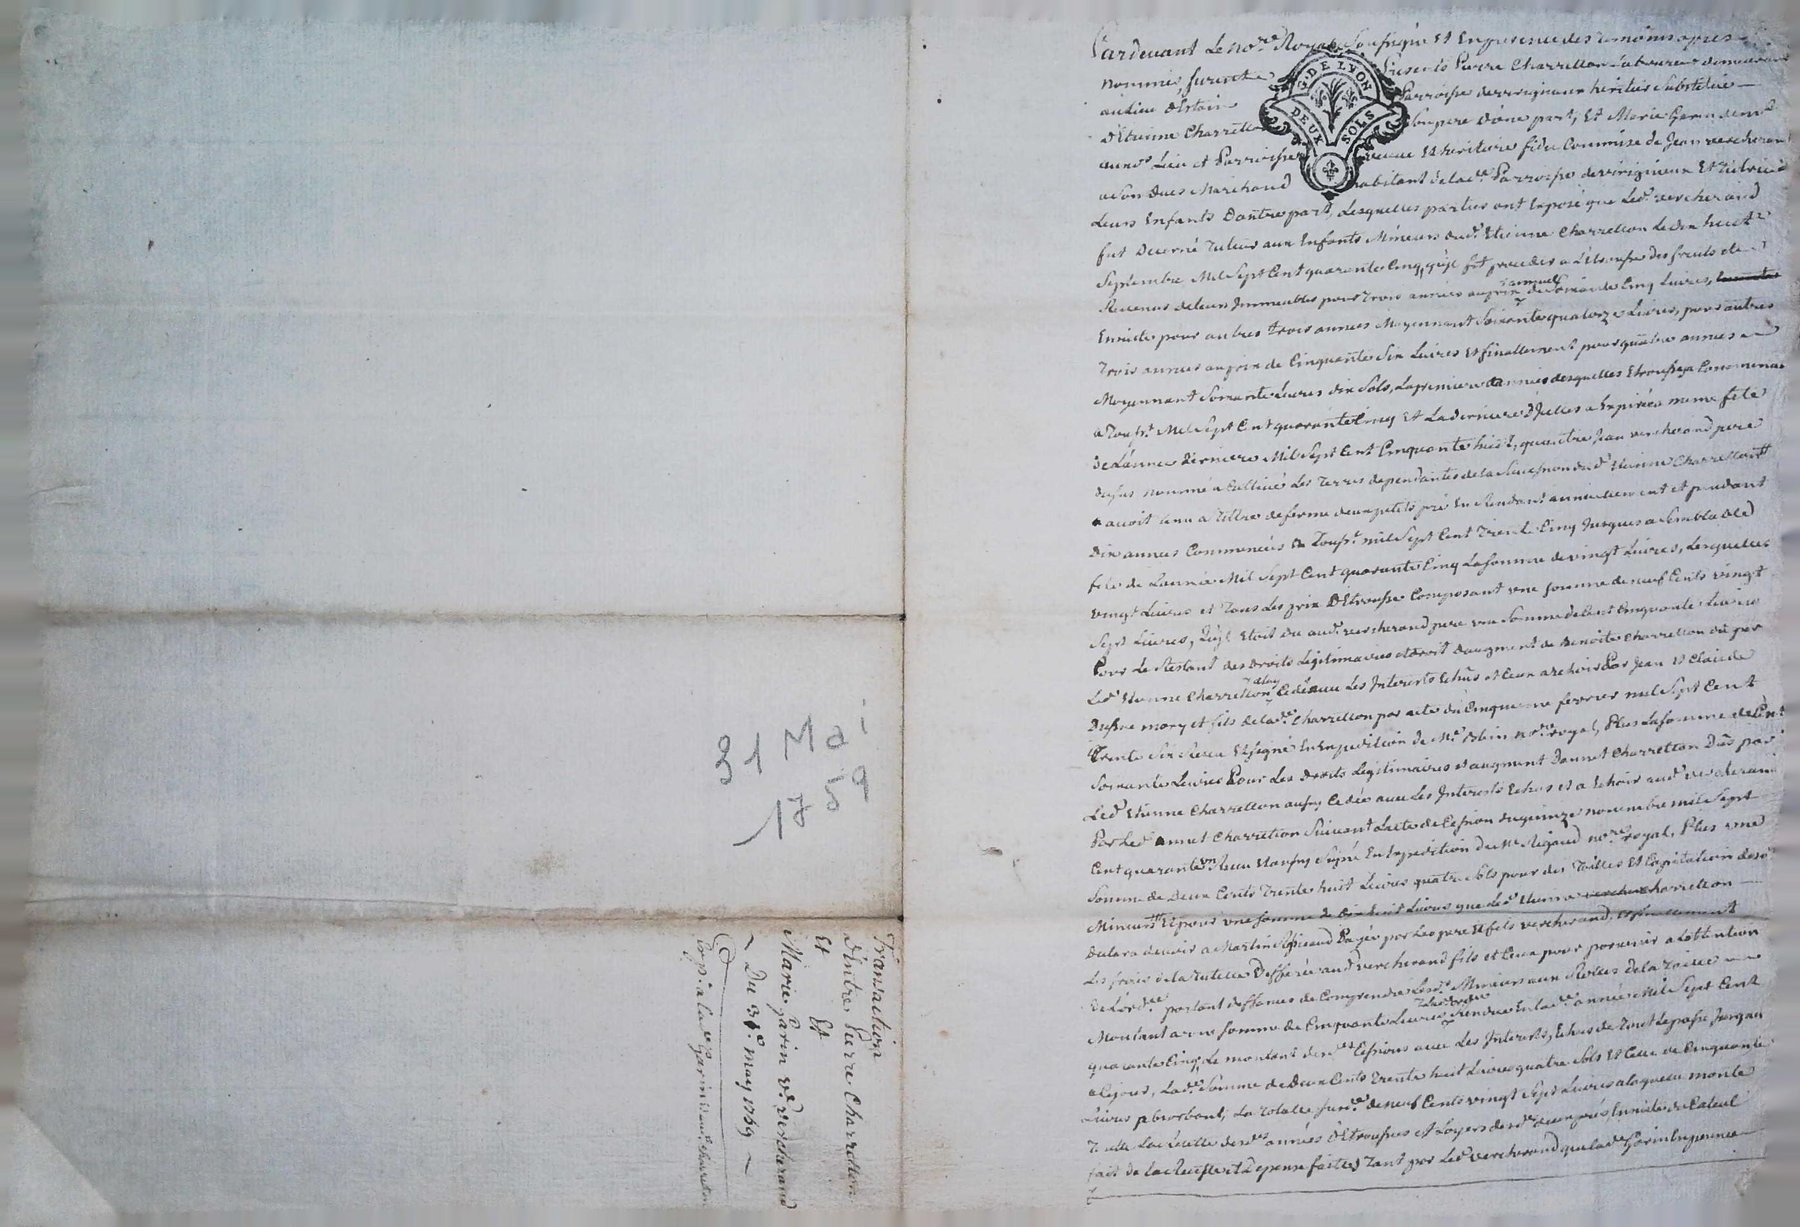 Pardevant Le no.re Royal Soussigné Et En presence des temoins apres
nommés furent présents Pierre Charretton Laboureur demeurant
au lieu d'Estain Parroisse de virigneux heritier Substitué
d'Etienne Charretton Son pere d'une part, Et Marie Garin dem.t
aud.t Lieu et Parroisse veuve Et heritiere fidei Commise de Jean vercherand
a Son vivant Marchand habitant de lad.e Parroisse de virigneux Et tutrice
Leurs Enfants D'autre part, Lesquelles parties ont Exposé que Led.t vercherand
fut Decerné Tuteur aux Enfants Mineurs dud.t Etienne Charretton Le dix huit
Septembre Mil Sept Cent quarante Cinq, qu'il fit proceder a L'Etrousse des fruits et
Revenus de leurs Immeubles pour Trois années au prix annuel de Soixante Cinq Livres,
Ensuite pour autres trois années Moyennant Soixante quatorze Livres, pour autres
Trois années au prix de Cinquante Six Livres Et finallement pour quatre années
Moyennant Soixante Livres dix Sols, La premiere d'années desquelles Etrousses a Commencé
a Touss.t Mil Sept Cent quarante Cinq Et La derniere d'Icelles a Expirée a meme fete
de L'année derniere Mil Sept Cent Cinquante huit, qu'outre Jean vercherand pere
dessus nommé a Cultivé Les Terres dependantes de la Succession dud.t Etienne Charretton
avoit tenu a Tittre de ferme deux petits prés En Rendant annuellement et pendant
Dix années Commencées a Touss.t mil Sept Cent Trente Cinq Jusques a Semblable
fete de L'année Mil Sept Cent quarante Cinq La Somme de vingt Livres, Lesquelles
vingt Livres et Tous Les prix d'Etrousse Composant une Somme de neuf Cents vingt
Sept Livres, qu'il Etoit du aud.t vercherand pere une Somme de Cent Cinquante Livres
Pour Le Restant des Droits Legitimaires et droit d'augment de Benoite Charretton dû par
Led.t Etienne Charretton a Luy Cédé avec Les Interets Echus et Ceux a echoir Par Jean Et Claude
Dufour mary et fils de lad.e Charretton par acte du Cinquieme fevrier mil Sept Cent
Trente Six Reçu Et Signé En Expedition de M.e Robin no.re royal, Plus La Somme de Cent
Soixante Livres Pour Les Droits Legitimaires et augment d'annet Charretton Dûs par
Led.t Etienne Charretton aussy Cédés avec Les Interets Echus et a Echoir aud.t vercherand
Par Led.t annet Charretton Suivant L'acte de Cession du quinze novembre mil Sept
Cent quarante un Reçu Et aussy Signé En Expedition du M.e Rigaud no.re royal, Plus une
Somme de Deux Cents Trente huit Livres quatre Sols pour des Tailles Et Capitation desd.
Mineurs Et pour une Somme de dix huit Livres que Led.t Etienne Charretton
declara devoir a Martin Payée par Les pere Et fils vercherand,
Les frais de la tutelle Defferée aud.t vercherand fils et Ceux pour parvenir a Lobtention
de L'ord.ce portant deffences de Comprendre Lesd.s Mineurs aux Rolles de la Taille
Montant a une Somme de Cinquante Livres rendue En lad.e année Mil Sept Cent
quarante Cinq, Le montant desd.es Cessions avec Les Interets, Echus de Tout Le passé Jusques
a Cejour, Lad.e Somme de deux Cents Trente huit Livres quatre Sols Et Celle de Cinquante
Livres absorbant, La Totalle Som.e de neuf Cents vingt Sept Livres a laquelle monte
Toutte La Recette desd.es années d'Etrousses et Loyers desd.s deux prés Ensuite du Calcul
fait de la Recette Et depense faites Tant par Led.t vercherand que lad.e Garin
31 Mai
1759
Transaction
d'Entre Pierre Charretton
Et
Marie Garin v.e vercherand
Du 31.e may 1759